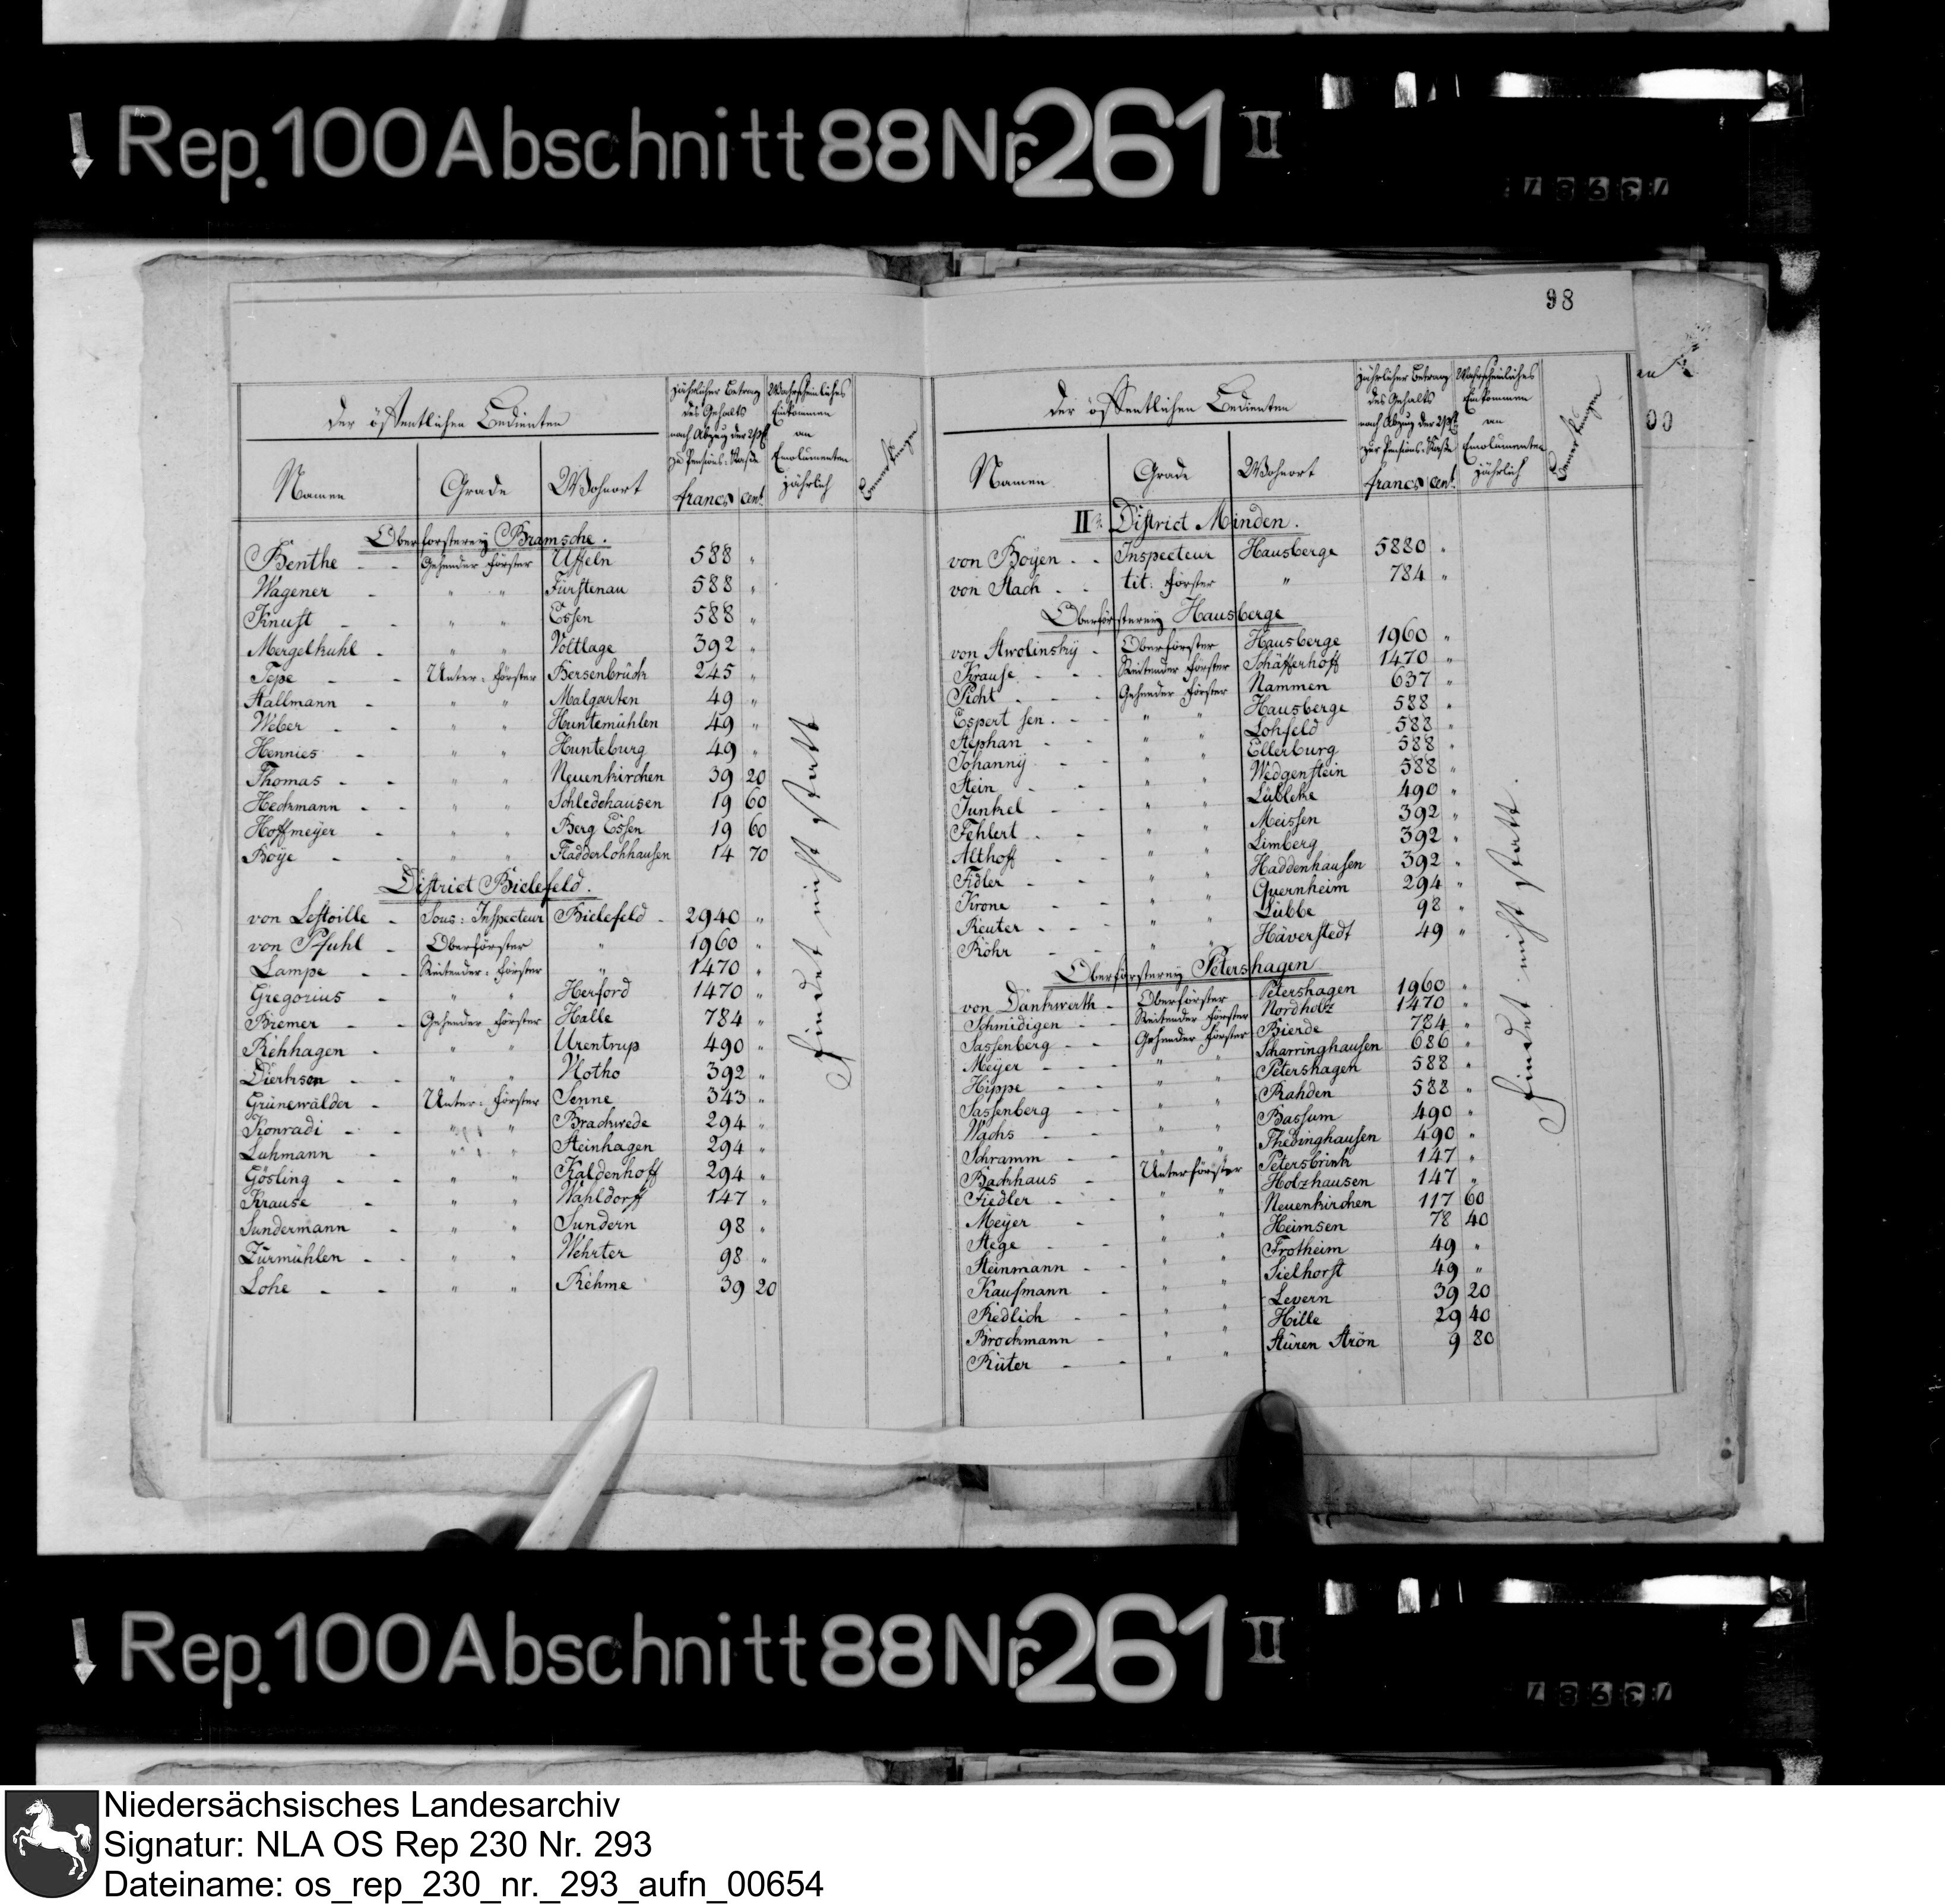 Rep. 100 Abschnitt 88 Nr. 261 II
98
der öffentlichen Bedienten
Jährlicher Betrag des Gehalts nach Abzug der 2 pC. zur Pensions-Kaße
Wahrscheinliches Einkommen an Emolumenten jährlich
Bemerkungen
Namen Grade Wohnort francs cent.
Oberförsterey Bramsche.
Benthe - - Gehender Förster Uffeln 588 "
Wagener - " " Fürstenau 588 "
Knust - - " " Essen 588 "
Mergelkuhl - " " Voltlage 392 "
Tepe - - Unter-Förster Bersenbrück 245 "
Stallmann - " " Malgarten 49 "
Weber - - " " Huntemühlen 49 "
Hennies - " " Hunteburg 49 "
Thomas - - " " Neuenkirchen 39 20
Heckmann - - " " Schledehausen 19 60
Hoffmeyer - " " Berg Essen 19 60
Böye - - " " Fladderlohhausen 14 70
District Bielefeld.
von Lestoille - Sous-Inspecteur Bielefeld - 2940 "
von Pfuhl - Oberförster " 1960 "
Lampe - - Reitender-Förster " 1470 "
Gregorius - " " Herford 1470 "
Biemer - - Gehender Förster Halle 784 "
Rehhagen - " " Urentrup 490 "
Dierksen - - " " Vlotho 392 "
Grünewälder - Unter-Förster Senne 343 "
Konradi - - " " Brackwede 294 "
Luhmann - " " Steinhagen 294 "
Gösling - - " " Kaldenhoff 294 "
Krause - " " Wahldorff 147 "
Sundermann - " " Sundern 98 "
Zurmühlen - - " " Wehrter 98 "
Lohe - - " " Rehme 39 20
Findet nicht statt
der öffentlichen Bedienten
Jährlicher Betrag des Gehalts nach Abzug der 2 pC. zur Pensions-Kaße
Wahrscheinliches Einkommen an Emolumenten jährlich
Bemerkungen
Namen Grade Wohnort francs cent.
II. District Minden.
von Boyen - - Inspecteur Hausberge 5880 "
von Stach - - tit. Förster " 784 "
Oberförsterey Hausberge
von Awolinsky - Oberförster Hausberge 1960 "
Krause - - - Reitender Förster Schäfferhoff 1470 "
Picht - - Gehender Förster Nammen 637 "
Espert sen. - - " " Hausberge 588 "
Stephan - - " " Lohfeld 588 "
Johanny - - " " Ellerburg 588 "
Stein - - " " Wedgenstein 588 "
Junkel - - " " Lübbcke 490 "
Fehlert - - " " Meissen 392 "
Althoff - - " " Limberg 392 "
Fidler - - " " Haddenhausen 392 "
Krone - - " " Quernheim 294 "
Reuter - - - " " Lübbe 98 "
Röhr - - " " Häverstedt 49 "
Oberförsterey Petershagen
von Dankwerth - Oberförster Petershagen 1960 "
Schmidigen - - Reitender Förster Nordholz 1470 "
Sassenberg - - Gehender Förster Bierde 784 "
Meyer - - - " " Scharringhausen 686 "
Hippe - - " " Petershagen 588 "
Sassenberg - - " " Rahden 588 "
Wachs - - " " Bassum 490 "
Schramm - - " " Thedinghausen 490 "
Backhaus - Unterförster Petersbrink 147 "
Fiedler - - " " Holzhausen 147 "
Meyer - " " Neuenkirchen 117 60
Stege - - " " Heimsen 78 40
Steinmann - - " " Frotheim 49 "
Kaufmann - " " Sielhorst 49 "
Redlich - - " " Levern 39 20
Brockmann - " " Hille 29 40
Rüter - - " " Stüren Strön 9 80
Findet nicht statt.
Rep. 100 Abschnitt 88 Nr. 261 II
Niedersächsisches Landesarchiv
Signatur: NLA OS Rep 230 Nr. 293
Dateiname: os_rep_230_nr._293_aufn_00654